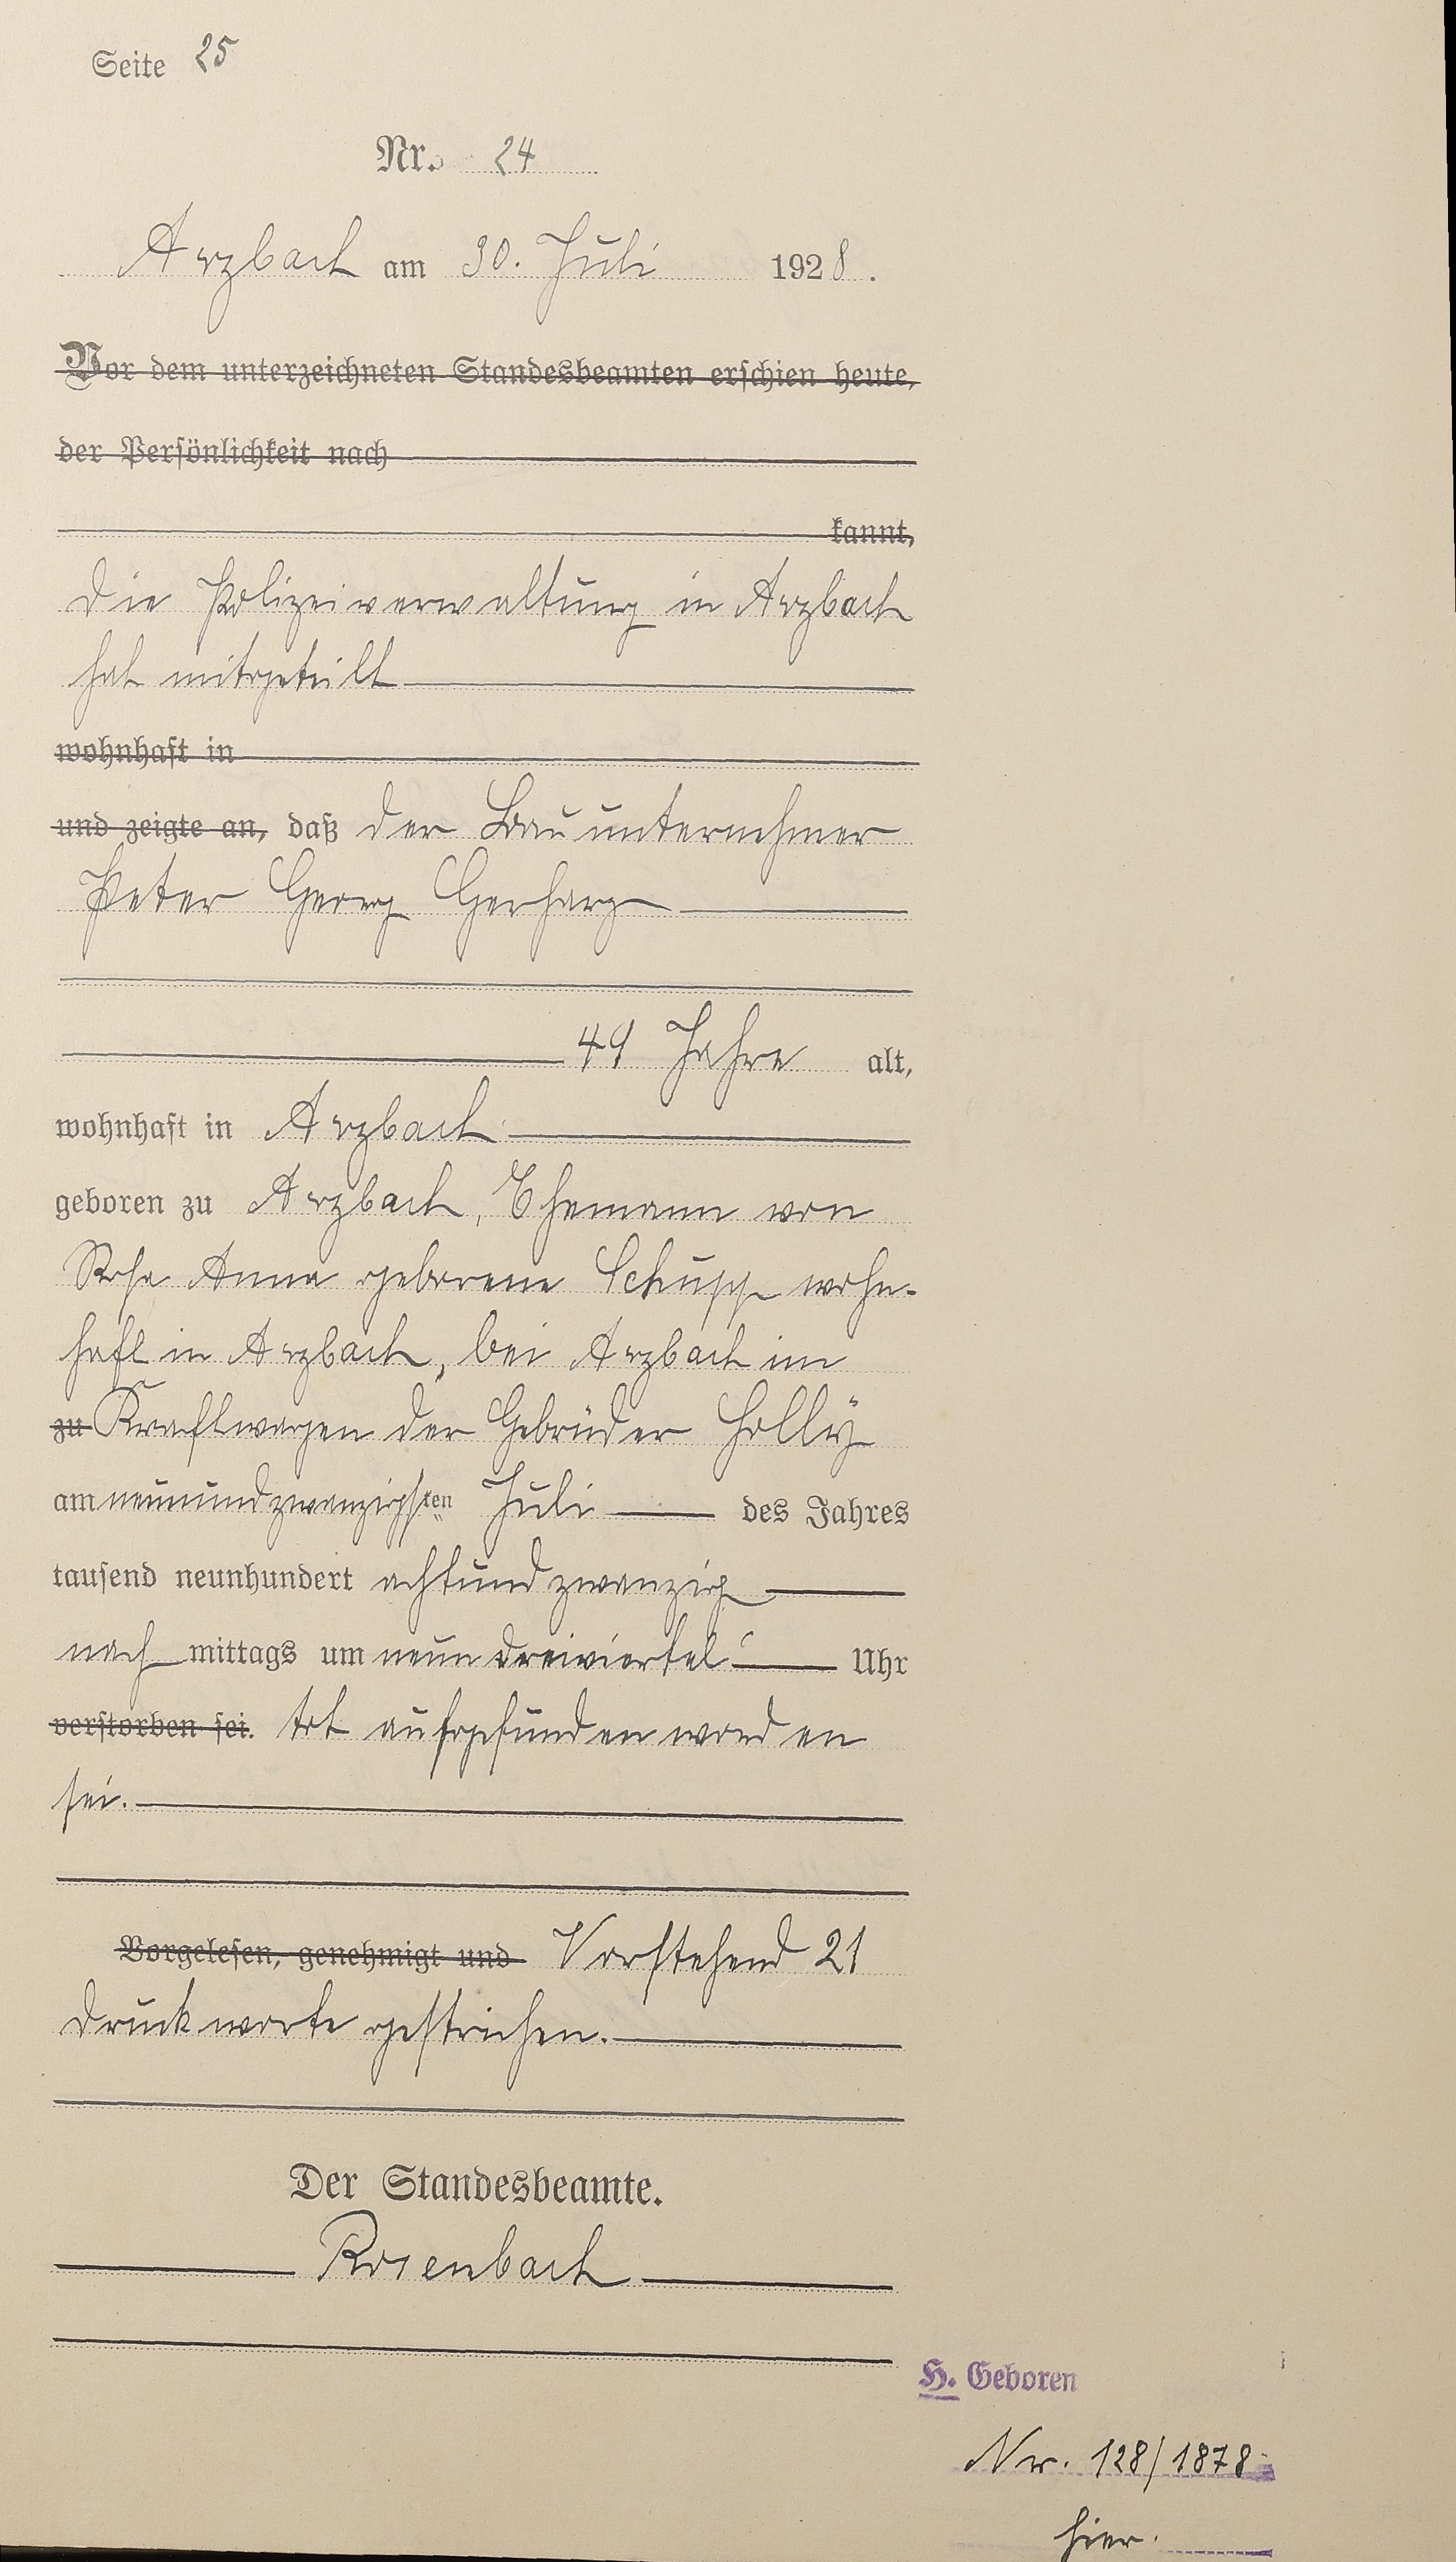 Seite 25
Nr. 24
Arzbach am 30. Juli 1928.
Vor dem unterzeichneten Standesbeamten erschien heute,
der Persönlichkeit nach
kannt,
die Polizeiverwaltung in Arzbach
hat mitgeteilt
wohnhaft in
und zeigte an, daß der Bauunternehmer
Peter Georg Gerharz
49 Jahre alt,
wohnhaft in Arzbach
geboren zu Arzbach, Ehemann von
Rosa Anna geborene Schupp wohn-
haft in Arzbach, bei Arzbach im
zu Kraftwagen der Gebrüder Holly
am neunundzwanzigsten Juli des Jahres
tausend neunhundert achtundzwanzig
nach mittags um neun dreiviertel Uhr
verstorben sei. tot aufgefunden worden
sei.
Vorgelesen, genehmigt und Vorstehend 21
Druckworte gestrichen.
Der Standesbeamte.
Rosenbach
H. Geboren
Nr. 128/1878
hier.